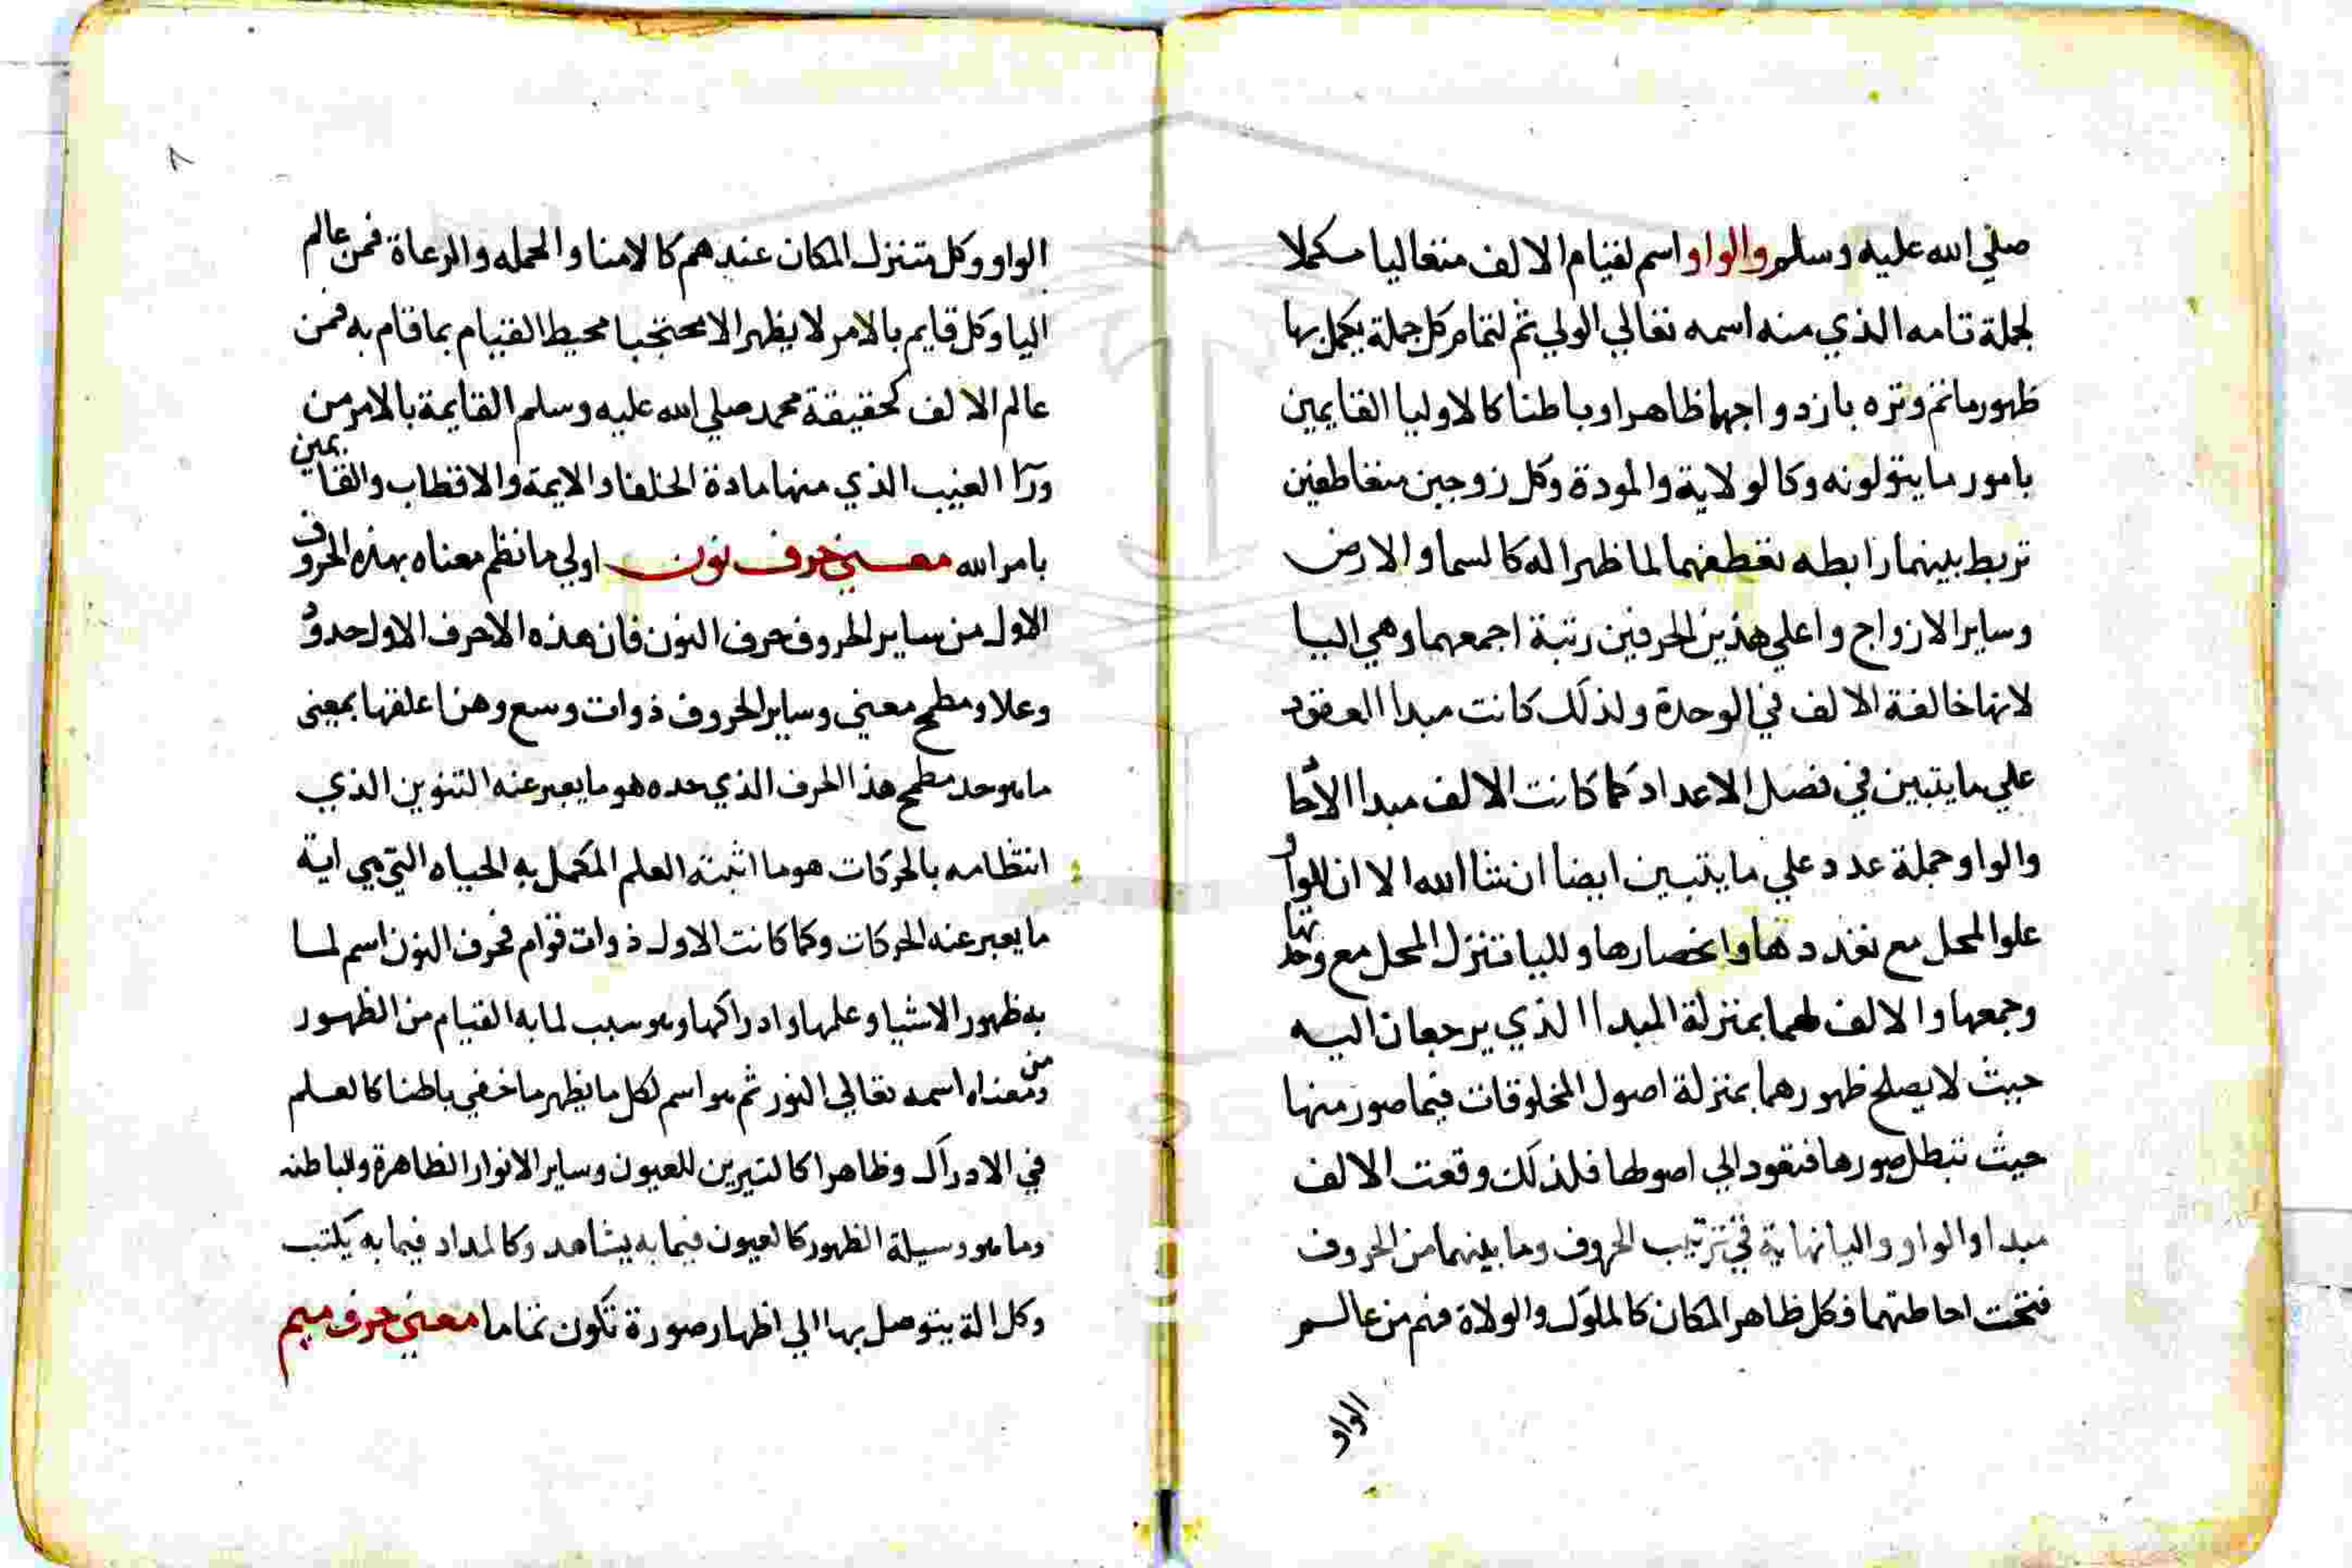 صلي الله عليه وسلم والواو اسم لقيام الالف متعاليا مكملا
لجملة تامه الذي منه اسمه تعالي الولي ثم لتمام كل جملة يكمل بها
ظهور ماتم وتره بازدواجها ظاهرا وباطنا كالاوليا القايمين
بامور ما يتولونه وكالولاية والمودة وكل زوجين متعاطفين
تربط بينهما رابطه تعطفهما لما ظهرا له كالسما والارض
وساير الازواج واعلي هذين الحرفين رتبة اجمعهما وهي اليا
لانها خالفة الالف في الوحدة ولذلك كانت مبدا العقود
علي ما يتبين في فصل الاعداد كما كانت الالف مبدا الاحاد
والواو جملة عدد علي ما يتبين ايضا ان شا الله الا ان للواو
علو المحل مع تعددها وانحصارها ولليا تنزل المحل مع وحدتها
وجمعها والالف لهما بمنزلة المبدا الذي يرجعان اليه
حيث لا يصلح ظهورهما بمنزلة اصول المخلوقات فيما صور منها
حيث تبطل صورها فتعود الي اصولها فلذلك وقعت الالف
مبدا والواو واليا نهاية في ترتيب الحروف وما بينهما من الحروف
فتحت احاطتهما فكل ظاهر المكان كالملوك والولاة فهم من عالم
الواو
٧
الواو وكل متنزل المكان عندهم كالامنا والحمله والرعاة فمن عالم
اليا وكل قايم بالامر لا يظهر الا محتجبا محيط القيام بما قام به فمن
عالم الالف كحقيقة محمد صلي الله عليه وسلم القايمة بالامر من
ورا الغيب الذي منها مادة الخلفا والايمة والاقطاب والقايمين
بامر الله معني حرف نون اولي ما نظم معناه بهذه الحروف
الاول من ساير الحروف حرف النون فان هذه الاحرف الاول حدود
وعلا ومطمح معني وساير الحروف ذوات وسع وهن اعلقها بمعني
ما هو حد مطمح هذا الحرف الذي حده هو ما يعبر عنه التنوين الذي
انتظامه بالحركات هو ما اثبته العلم المكمل به الحياه التي هي اية
ما يعبر عنه الحركات وكما كانت الاول ذوات قوام فحرف النون اسم لما
به ظهور الاشيا وعلمها وادراكها وهو سبب لما به القيام من الظهور
ومن معناه اسمه تعالي النور ثم هو اسم لكل ما يظهر ما خفي باطنا كالعلم
في الادراك وظاهرا كالنيرين للعيون وساير الانوار الظاهرة والباطنه
وما هو وسيلة الظهور كالعيون فيما به يشاهد وكالمداد فيما به يكتب
وكل الة يتوصل بها الي اظهار صورة تكون تماما معني حرف ميم